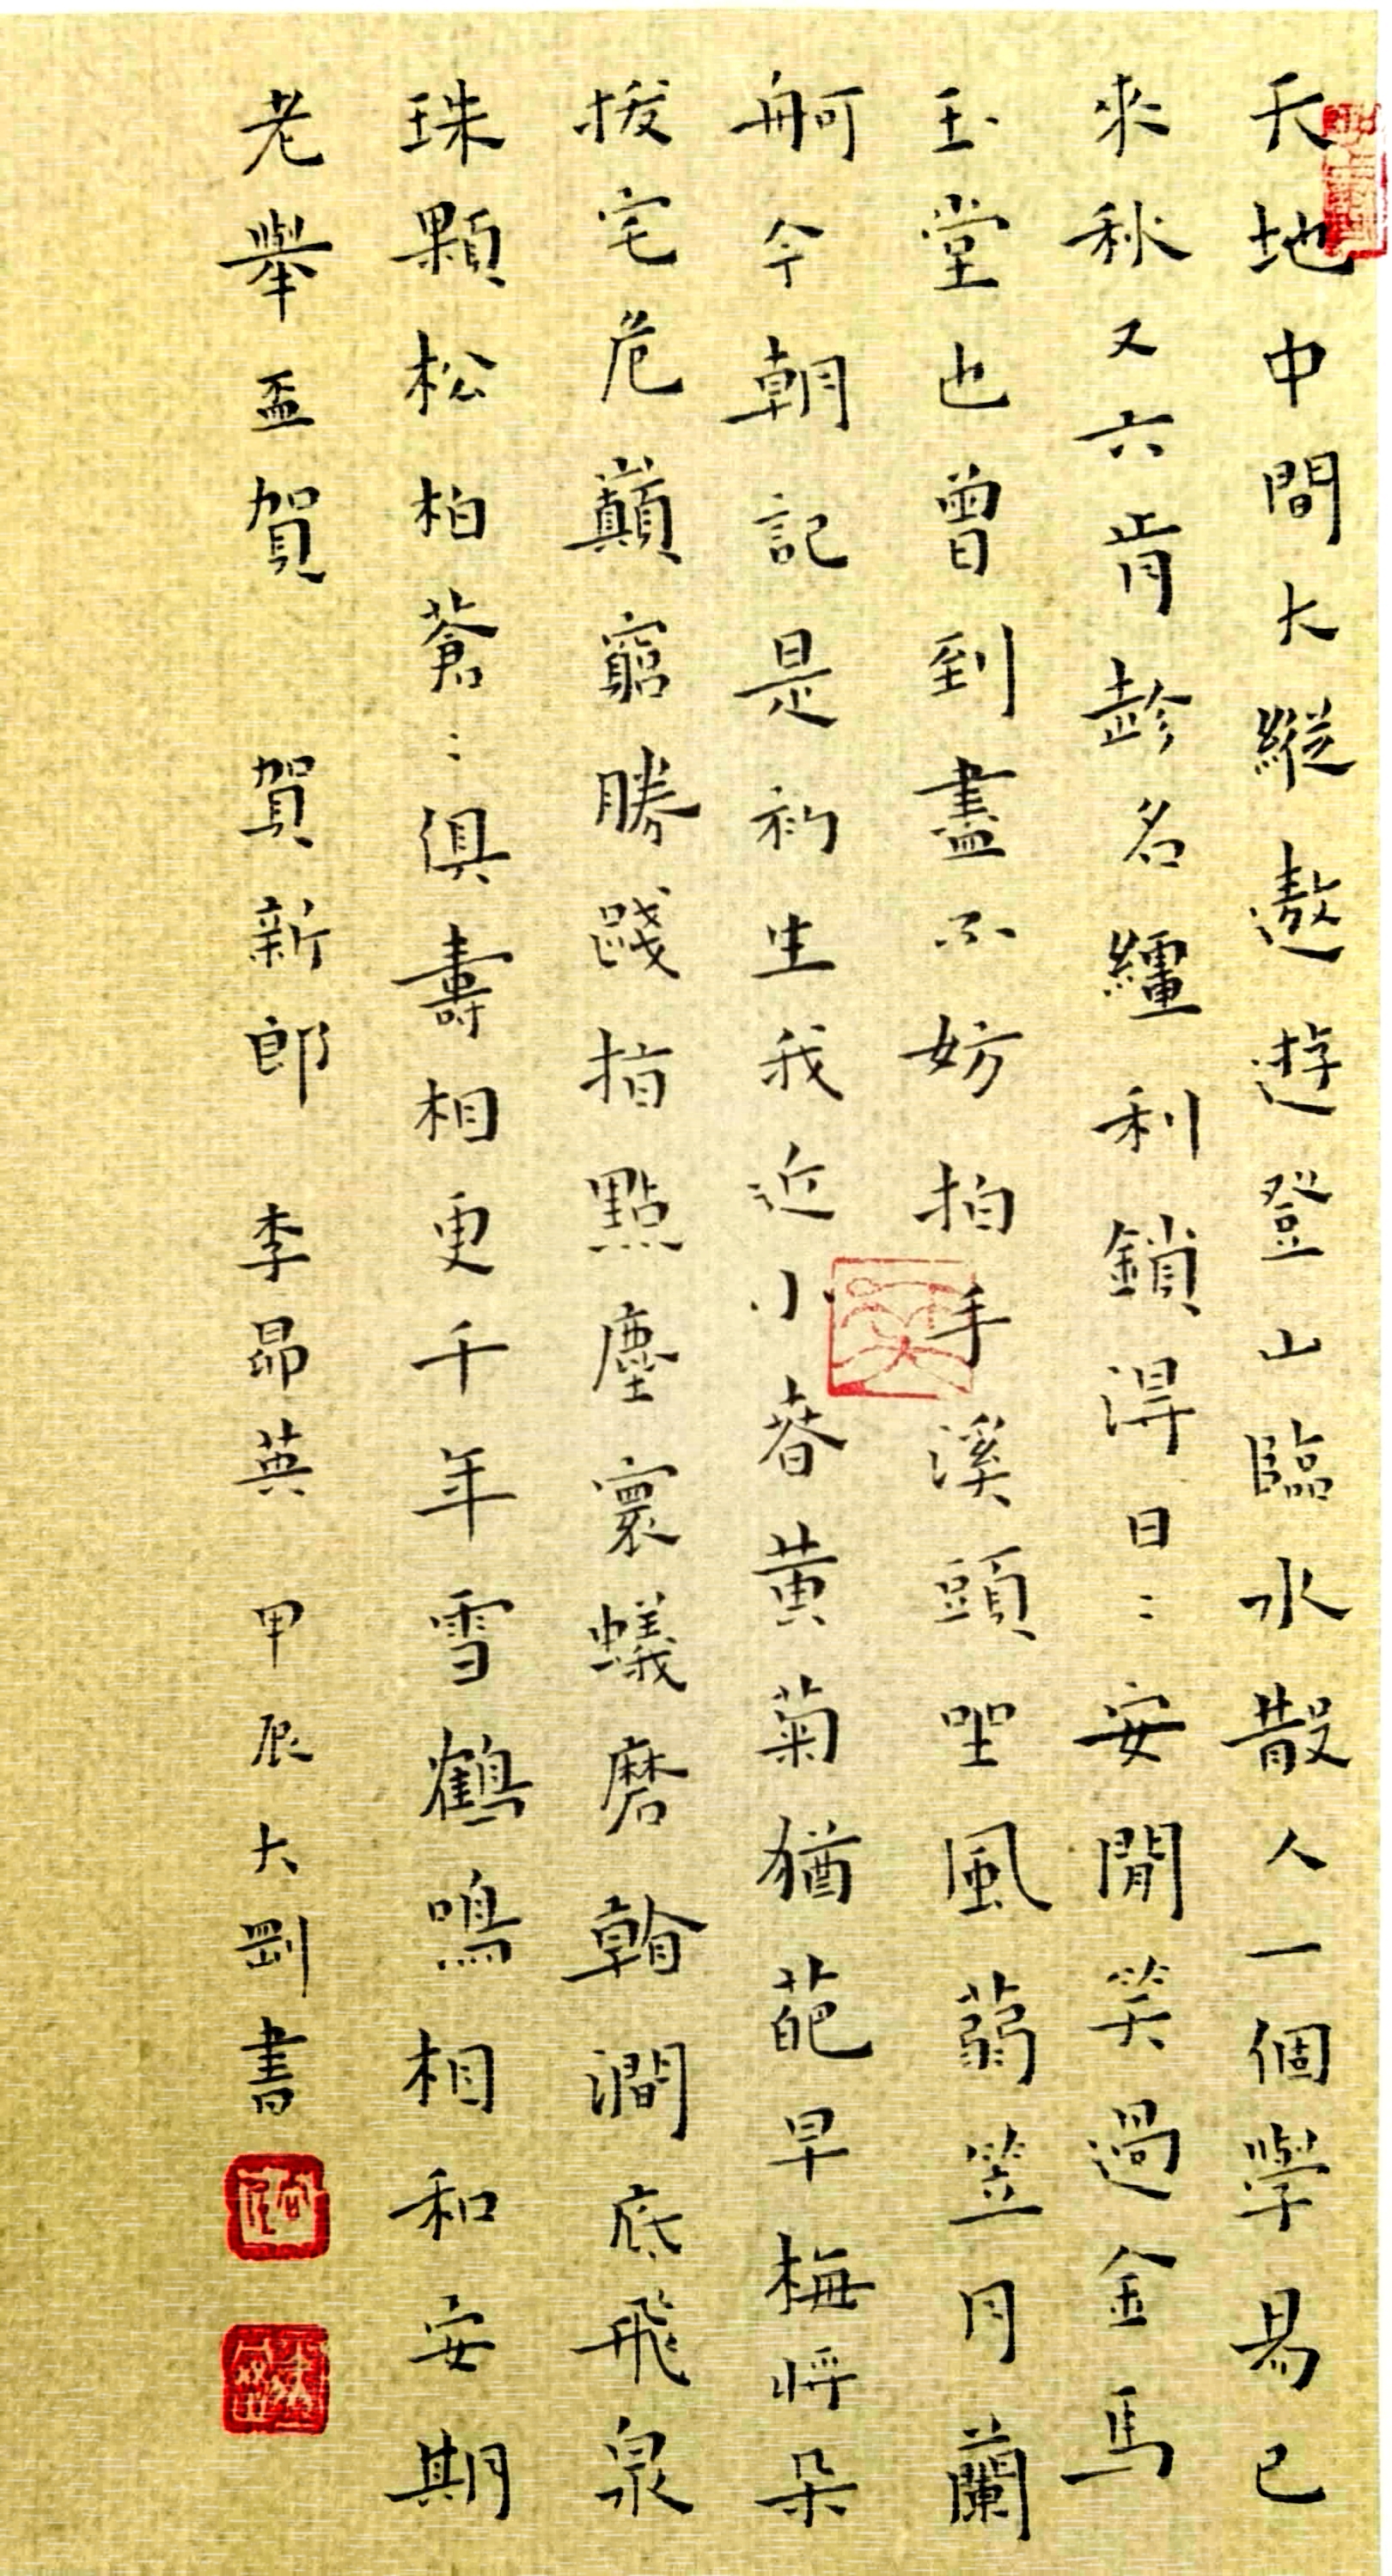 天地中間大縱遨遊登山臨水散人一個學易已
來秋又六肯趁名韁利鎖淂日〻安閒笑過金馬
玉堂也曾到盡不妨拍手溪頭聖風蒻笠月蘭
舸今朝記是初生我近小春黃菊猶葩早梅將朵
拔宅危巔窮勝踐指點塵寰蟻磨斡澗底飛泉
珠顆松柏蒼〻俱壽相更千年雪鶴鳴相和安期
老舉盃賀 賀新郎 李昴英 甲辰大剛書